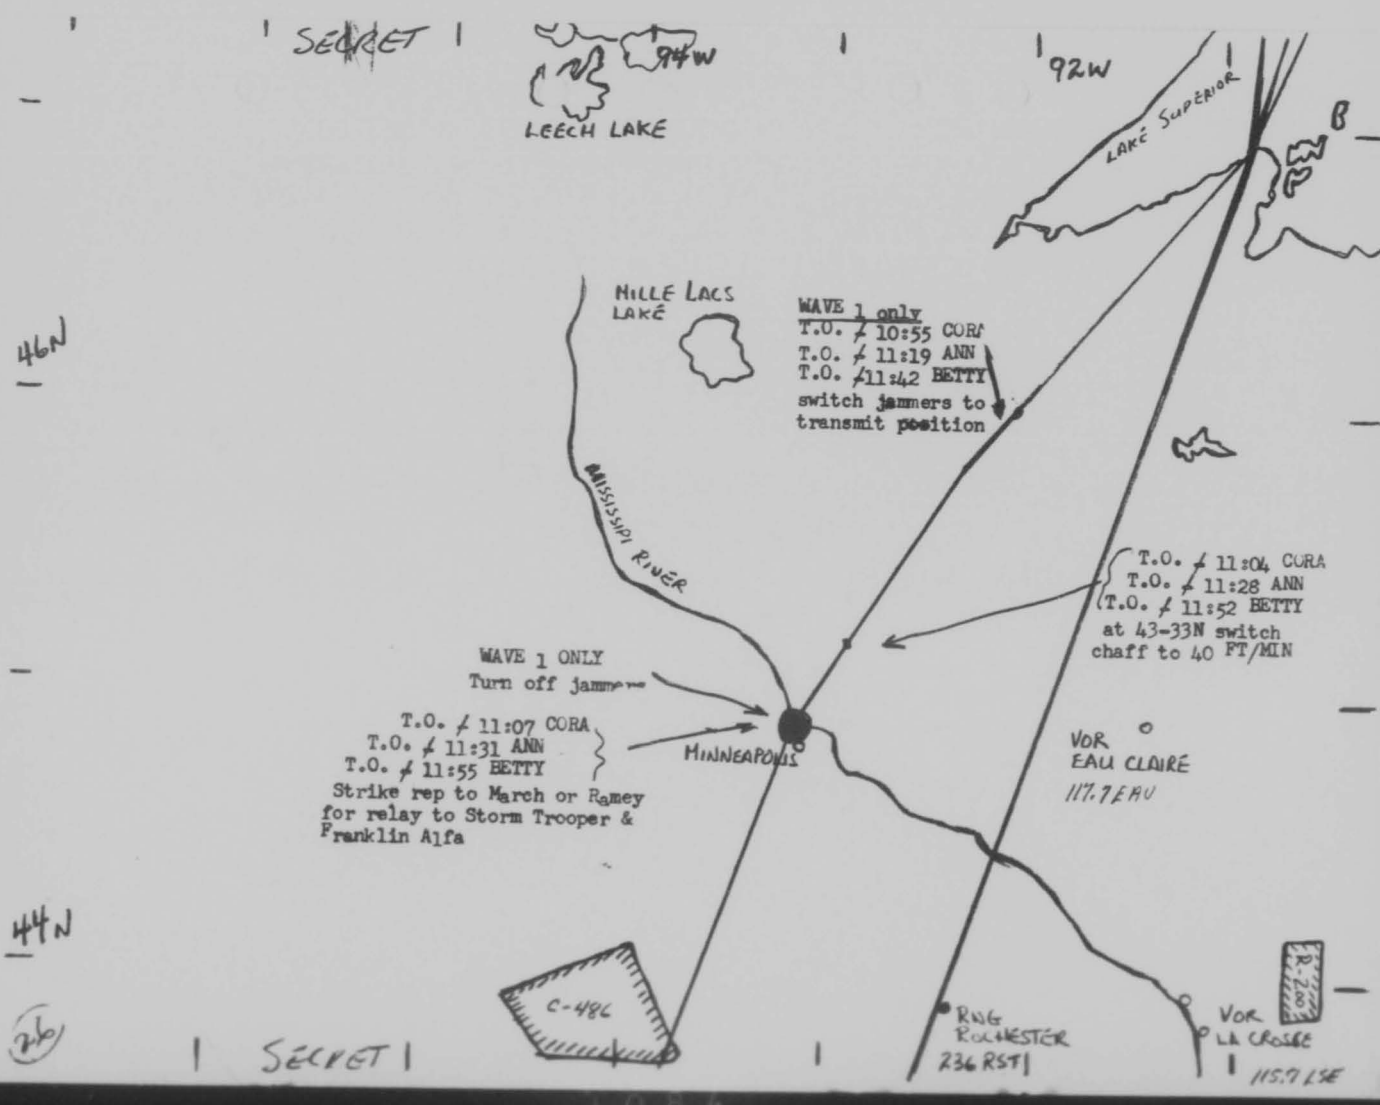 SECRET
94W
92W
LEECH LAKE
LAKE SUPERIOR
B
MILLE LACS
LAKE
46N
WAVE 1 only
T.O. ≠ 10:55 CORA
T.O. ≠ 11:19 ANN
T.O. ≠ 11:42 BETTY
switch jammers to
transmit position
MISSISSIPI RIVER
T.O. ≠ 11:04 CORA
T.O. ≠ 11:28 ANN
T.O. ≠ 11:52 BETTY
at 43-33N switch
chaff to 40 FT/MIN
WAVE 1 ONLY
Turn off jammers
T.O. ≠ 11:07 CORA
T.O. ≠ 11:31 ANN
T.O. ≠ 11:55 BETTY
Strike rep to March or Ramey
for relay to Storm Trooper &
Franklin Alfa
MINNEAPOLIS
VOR
EAU CLAIRE
117.7 EAU
44N
C-486
R-200
RNG
ROCHESTER
236 RST
VOR
LA CROSSE
115.7 LSE
26
SECRET